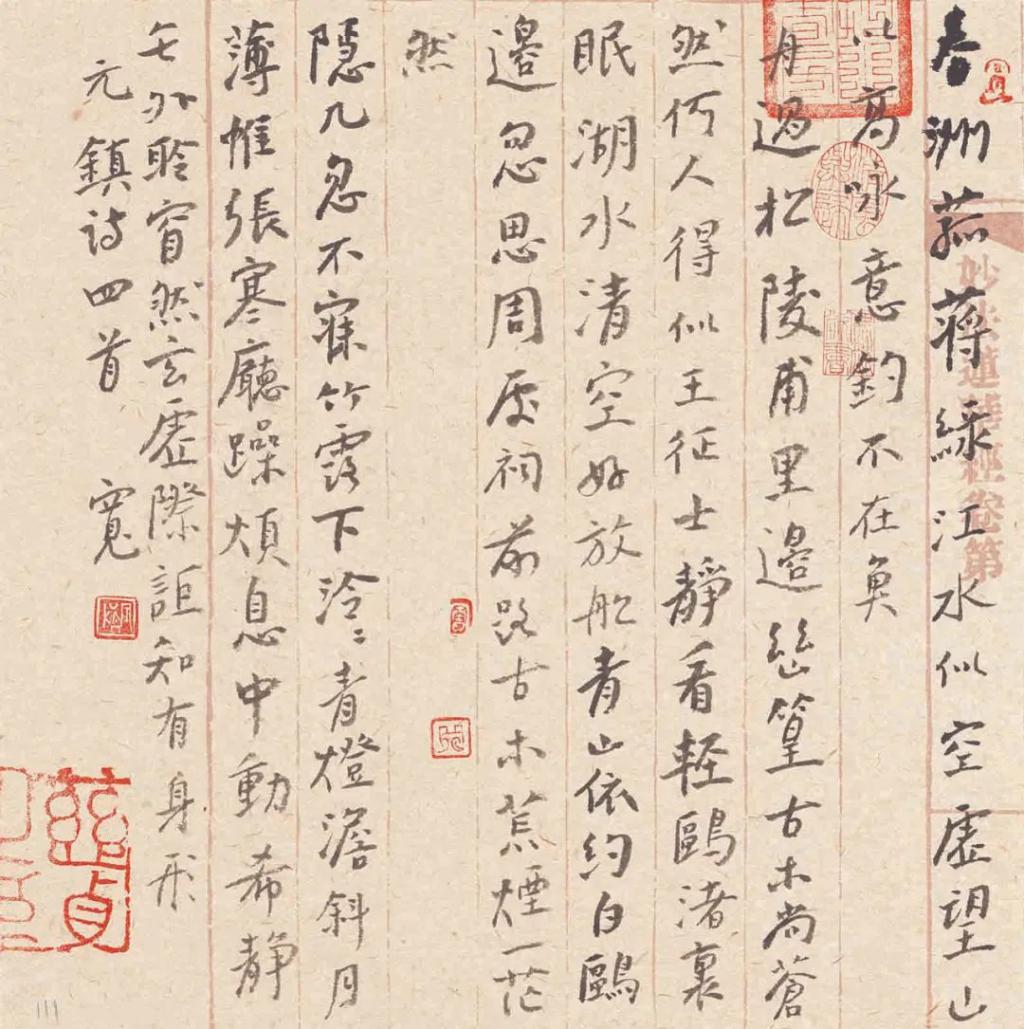 春洲菰蔣綠江水似空虛望山
以高咏意釣不在魚
舟過松陵甫里邊幽篁古木尚蒼
然何人得似王征士靜看輕鷗渚裏
眠湖水清空好放船青山依約白鷗
邊忽思周處祠前路古木荒煙一茫
然
隱几忽不寐竹露下泠〻青燈澹斜月
薄帷張寒廳躁煩息中動希靜
無外聆窅然玄虛際詎知有身形
元鎮詩四首 寬
妙法蓮華經卷第